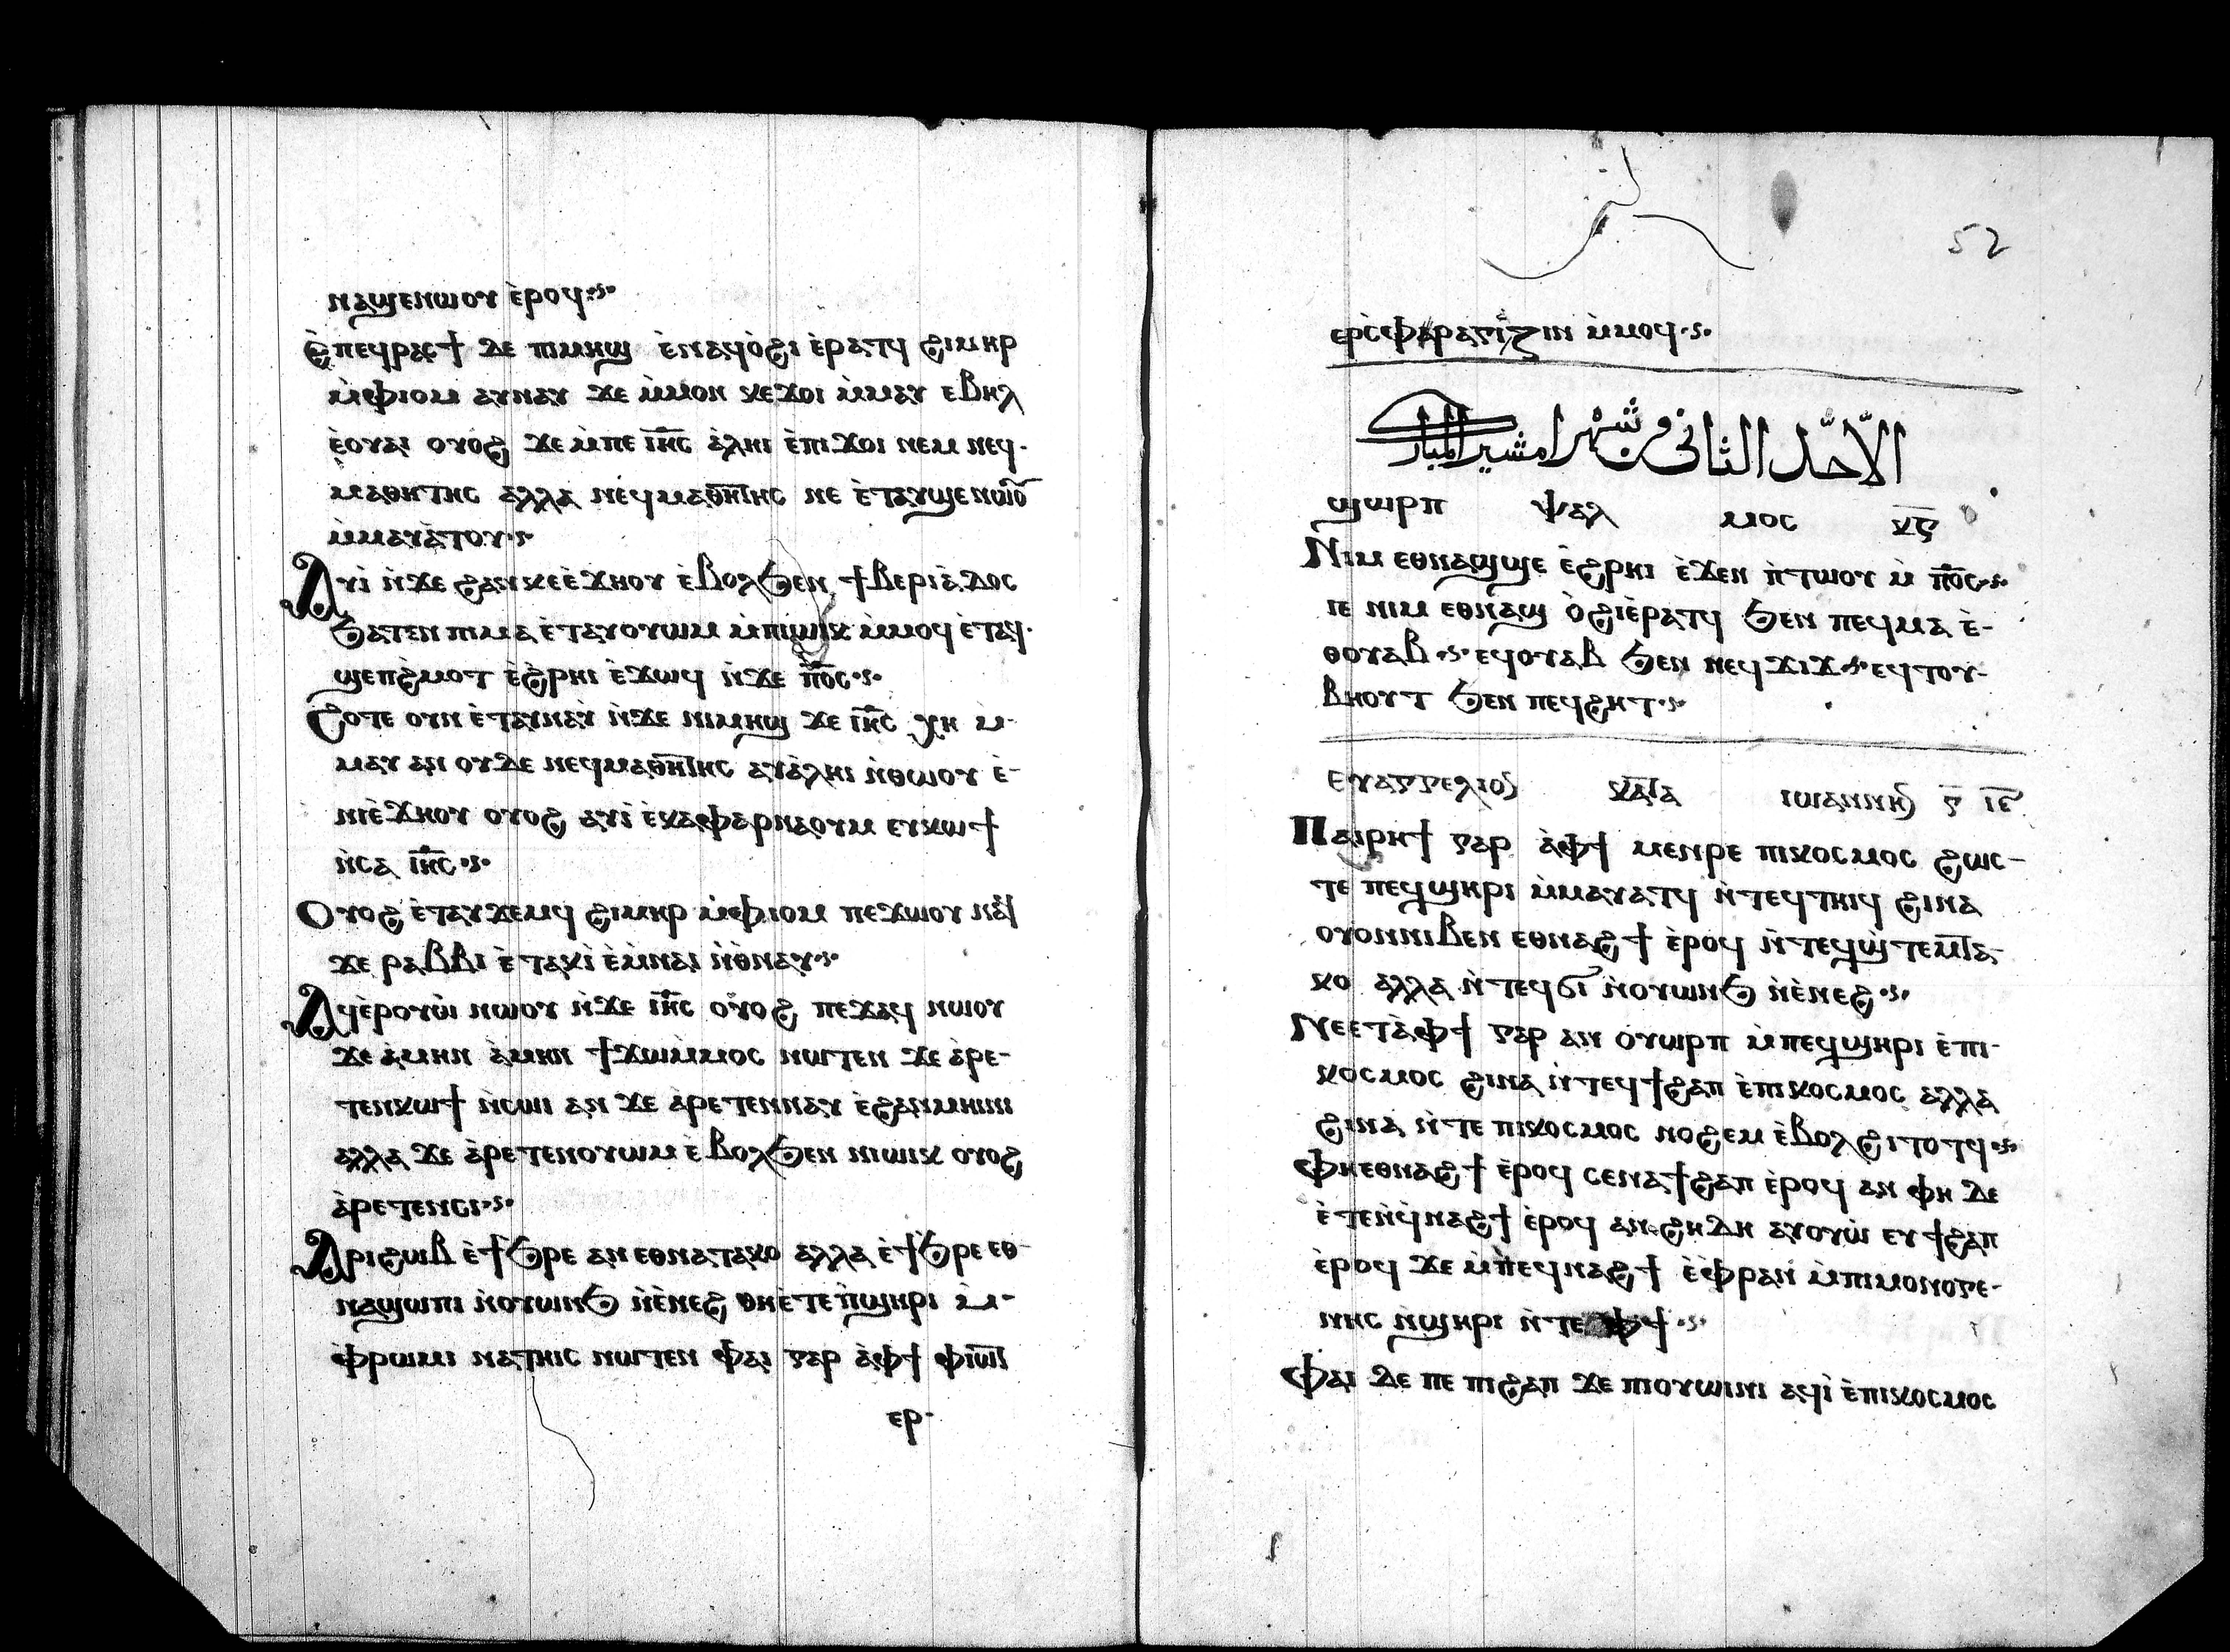 ⲛⲁϣⲉⲛⲱⲟⲩ ⲉ̀ⲣⲟϥ
Ⲉ̀ⲡⲉϥⲣⲁⲥϯ ⲇⲉ ⲡⲓⲙⲏϣ ⲉ̀ⲛⲁϥⲟ̀ϩⲓ ⲉ̀ⲣⲁⲧϥ ϩⲓⲙⲏⲣ
ⲙ̀ⲫⲓⲟⲙ ⲁⲩⲛⲁⲩ ϫⲉ ⲙ̀ⲙⲟⲛ ⲕⲉϫⲟⲓ ⲙ̀ⲙⲁⲩ ⲉⲃⲏⲗ
ⲉ̀ⲟⲩⲁⲓ ⲟⲩⲟϩ ϫⲉ ⲙ̀ⲡⲉ ⲓⲏ̅ⲥ ⲁ̀ⲗⲏⲓ ⲉ̀ⲡⲓϫⲟⲓ ⲛⲉⲙ ⲛⲉϥ-
ⲙⲁⲑⲏⲧⲏⲥ ⲁⲗⲗⲁ ⲛⲉϥⲙⲁⲑⲏⲧⲏⲥ ⲛⲉ ⲉ̀ⲧⲁⲩϣⲉⲛⲱⲟⲩ
ⲙ̀ⲙⲁⲩⲁ̀ⲧⲟⲩ
Ⲁⲩⲓ̀ ⲛ̀ϫⲉ ϩⲁⲛⲕⲉⲉ̀ϫⲏⲟⲩ ⲉ̀ⲃⲟⲗϧⲉⲛ ϯⲃⲉⲣⲓⲁ̀ⲇⲟⲥ
ϧⲁⲧⲉⲛ ⲡⲓⲙⲁ ⲉ̀ⲧⲁⲩⲟⲩⲱⲙ ⲙ̀ⲡⲓⲱⲓⲕ ⲙ̀ⲙⲟϥ ⲉ̀ⲧⲁϥ-
ϣⲉⲡϩ̀ⲙⲟⲧ ⲉ̀ϩ̀ⲣⲏⲓ ⲉ̀ϫⲱϥ ⲛ̀ϫⲉ ⲡ̅ⲟ̅ⲥ
Ϩⲟⲧⲉ ⲟⲩⲛ ⲉ̀ⲧⲁⲩⲛⲁⲩ ⲛ̀ϫⲉ ⲛⲓⲙⲏϣ ϫⲉ ⲓⲏ̅ⲥ ⲭⲏ ⲙ̀-
ⲙⲁⲩ ⲁⲛ ⲟⲩⲇⲉ ⲛⲉϥⲙⲁⲑⲏⲧⲏⲥ ⲁⲩⲁ̀ⲗⲏⲓ ⲛ̀ⲑⲱⲟⲩ ⲉ̀-
ⲛⲓⲉ̀ϫⲏⲟⲩ ⲟⲩⲟϩ ⲁⲩⲓ̀ ⲉ̀ⲕⲁⲫⲁⲣⲛⲁⲟⲩⲙ ⲉⲩⲕⲱϯ
ⲛ̀ⲥⲁ ⲓⲏ̅ⲥ
Ⲟⲩⲟϩ ⲉ̀ⲧⲁⲩϫⲉⲙϥ ϩⲓⲙⲏⲣ ⲙ̀ⲫⲓⲟⲙ ⲡⲉϫⲱⲟⲩ ⲛⲁϥ
ϫⲉ ⲣⲁⲃⲃⲓ ⲉ̀ⲧⲁⲕⲓ̀ ⲉ̀ⲙ̀ⲛⲁⲓ ⲛ̀ⲑ̀ⲛⲁⲩ
Ⲁϥⲉ̀ⲣⲟⲩⲱ̀ ⲛⲱⲟⲩ ⲛ̀ϫⲉ ⲓⲏ̅ⲥ ⲟⲩⲟϩ ⲡⲉϫⲁϥ ⲛⲱⲟⲩ
ϫⲉ ⲁ̀ⲙⲏⲛ ⲁ̀ⲙⲏⲛ ϯϫⲱⲙ̀ⲙⲟⲥ ⲛⲱⲧⲉⲛ ϫⲉ ⲁ̀ⲣⲉ-
ⲧⲉⲛⲕⲱϯ ⲛ̀ⲥⲱⲓ ⲁⲛ ϫⲉ ⲁ̀ⲣⲉⲧⲉⲛⲛⲁⲩ ⲉ̀ϩⲁⲛⲙⲏⲓⲛⲓ
ⲁⲗⲗⲁ ϫⲉ ⲁ̀ⲣⲉⲧⲉⲛⲟⲩⲱⲙ ⲉ̀ⲃⲟⲗϧⲉⲛ ⲛⲓⲱⲓⲕ ⲟⲩⲟϩ
ⲁ̀ⲣⲉⲧⲉⲛⲥⲓ
Ⲁⲣⲓϩⲱⲃ ⲉ̀ϯϧⲣⲉ ⲁⲛ ⲉⲑⲛⲁⲧⲁⲕⲟ ⲁⲗⲗⲁ ⲉ̀ϯϧⲣⲉ ⲉⲑ-
ⲛⲁϣⲱⲡⲓ ⲛ̀ⲟⲩⲱⲛϧ ⲛ̀ⲉ̀ⲛⲉϩ ⲑⲏⲉ̀ⲧⲉ ⲡ̀ϣⲏⲣⲓ ⲙ̀-
ⲫ̀ⲣⲱⲙⲓ ⲛⲁⲧⲏⲓⲥ ⲛⲱⲧⲉⲛ ⲫⲁⲓ ⲅⲁⲣ ⲁ̀ⲫϯ ⲫⲓⲱⲧ
ⲉⲣ-
52
ⲉⲣⲥ̀ⲫⲣⲁⲅⲓⲍⲓⲛ ⲙ̀ⲙⲟϥ
الاحد الثانى من شهر امشير المبارك
ϣⲱⲣⲡ ⲯⲁⲗⲙⲟⲥ ⲕ̅ⲅ̅
Ⲛⲓⲙ ⲉⲑⲛⲁϣϣⲉ ⲉ̀ϩⲣⲏⲓ ⲉ̀ϫⲉⲛ ⲡ̀ⲧⲱⲟⲩ ⲙ̀ ⲡ̅ⲟ̅ⲥ
ⲓⲉ ⲛⲓⲙ ⲉⲑⲛⲁϣ ⲟ̀ϩⲓⲉ̀ⲣⲁⲧϥ ϧⲉⲛ ⲡⲉϥⲙⲁ ⲉ̀-
ⲑⲟⲩⲁⲃ ⲉϥⲟⲩⲁⲃ ϧⲉⲛ ⲛⲉϥϫⲓϫ ⲉϥⲧⲟⲩ-
ⲃⲏⲟⲩⲧ ϧⲉⲛ ⲡⲉϥϩⲏⲧ
ⲉⲩⲁⲅⲅⲉⲗⲓⲟⲛ ⲕⲁⲧⲁ ⲓⲱⲁⲛⲛⲏⲛ ⲅ̅ ⲓ̅ⲉ̅
Ⲡⲁⲓⲣⲏϯ ⲅⲁⲣ ⲁ̀ⲫϯ ⲙⲉⲛⲣⲉ ⲡⲓⲕⲟⲥⲙⲟⲥ ϩⲱⲥ-
ⲧⲉ ⲡⲉϥϣⲏⲣⲓ ⲙ̀ⲙⲁⲩⲁⲧϥ ⲛ̀ⲧⲉϥⲧⲏⲓϥ ϩⲓⲛⲁ
ⲟⲩⲟⲛⲛⲓⲃⲉⲛ ⲉⲑⲛⲁϩϯ ⲉ̀ⲣⲟϥ ⲛ̀ⲧⲉϥϣ̀ⲧⲉⲙⲧⲁ-
ⲕⲟ ⲁⲗⲗⲁ ⲛ̀ⲧⲉϥϭⲓ ⲛ̀ⲟⲩⲱⲛϧ ⲛ̀ⲉ̀ⲛⲉϩ
Ⲛⲉⲉⲧⲁ̀ⲫϯ ⲅⲁⲣ ⲁⲛ ⲟⲩⲱⲣⲡ ⲙ̀ⲡⲉϥϣⲏⲣⲓ ⲉ̀ⲡⲓ-
ⲕⲟⲥⲙⲟⲥ ϩⲓⲛⲁ ⲛ̀ⲧⲉϥϯϩⲁⲡ ⲉ̀ⲡⲓⲕⲟⲥⲙⲟⲥ ⲁⲗⲗⲁ
ϩⲓⲛⲁ ⲛ̀ⲧⲉ ⲡⲓⲕⲟⲥⲙⲟⲥ ⲛⲟϩⲉⲙ ⲉ̀ⲃⲟⲗϩⲓⲧⲟⲧϥ
Ⲫⲏⲉⲑⲛⲁϩϯ ⲉ̀ⲣⲟϥ ⲥⲉⲛⲁϯϩⲁⲡ ⲉ̀ⲣⲟϥ ⲁⲛ ⲫⲏ ⲇⲉ
ⲉ̀ⲧⲉⲛ̀ϥ̀ⲛⲁϩϯ ⲉ̀ⲣⲟϥ ⲁⲛ ϩⲏⲇⲏ ⲁⲩⲟⲩⲱ̀ ⲉⲩϯϩⲁⲡ
ⲉ̀ⲣⲟϥ ϫⲉ ⲙ̀ⲡⲉϥⲛⲁϩϯ ⲉ̀ⲫ̀ⲣⲁⲛ ⲙ̀ⲡⲓⲙⲟⲛⲟⲅⲉ-
ⲛⲏⲥ ⲛ̀ϣⲏⲣⲓ ⲛ̀ⲧⲉ ⲫϯ
Ⲫⲁⲓ ⲇⲉ ⲡⲉ ⲡⲓϩⲁⲡ ϫⲉ ⲡⲓⲟⲩⲱⲓⲛⲓ ⲁϥⲓ̀ ⲉ̀ⲡⲓⲕⲟⲥⲙⲟⲥ